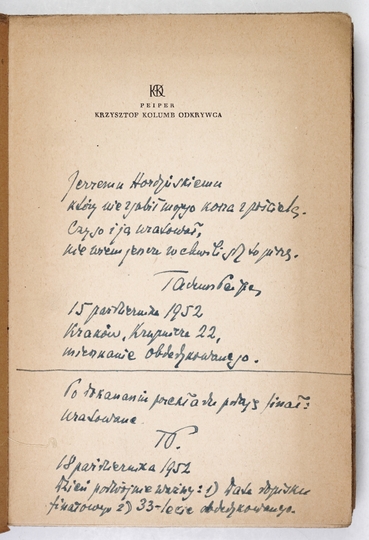 PEIPER
KRZYSZTOF KOLUMB ODKRYWCA
Jerzemu Hordyńskiemu
który nie zgubił mojego kosza z pościelą.
Czy go i ja uratował,
nie wiem jeszcze w chwili gdy to piszę.
Tadeusz Peiper
15 października 1952
Kraków, Krupnicza 22,
mieszkanie Obdedykowanego.
Po dokonaniu przekładu podaję finał:
Uratowane.
TP.
18 października 1952
Dzień podwójnie ważny: 1) Data dopisku
finałowego 2) 33-lecie obdedykowanego.